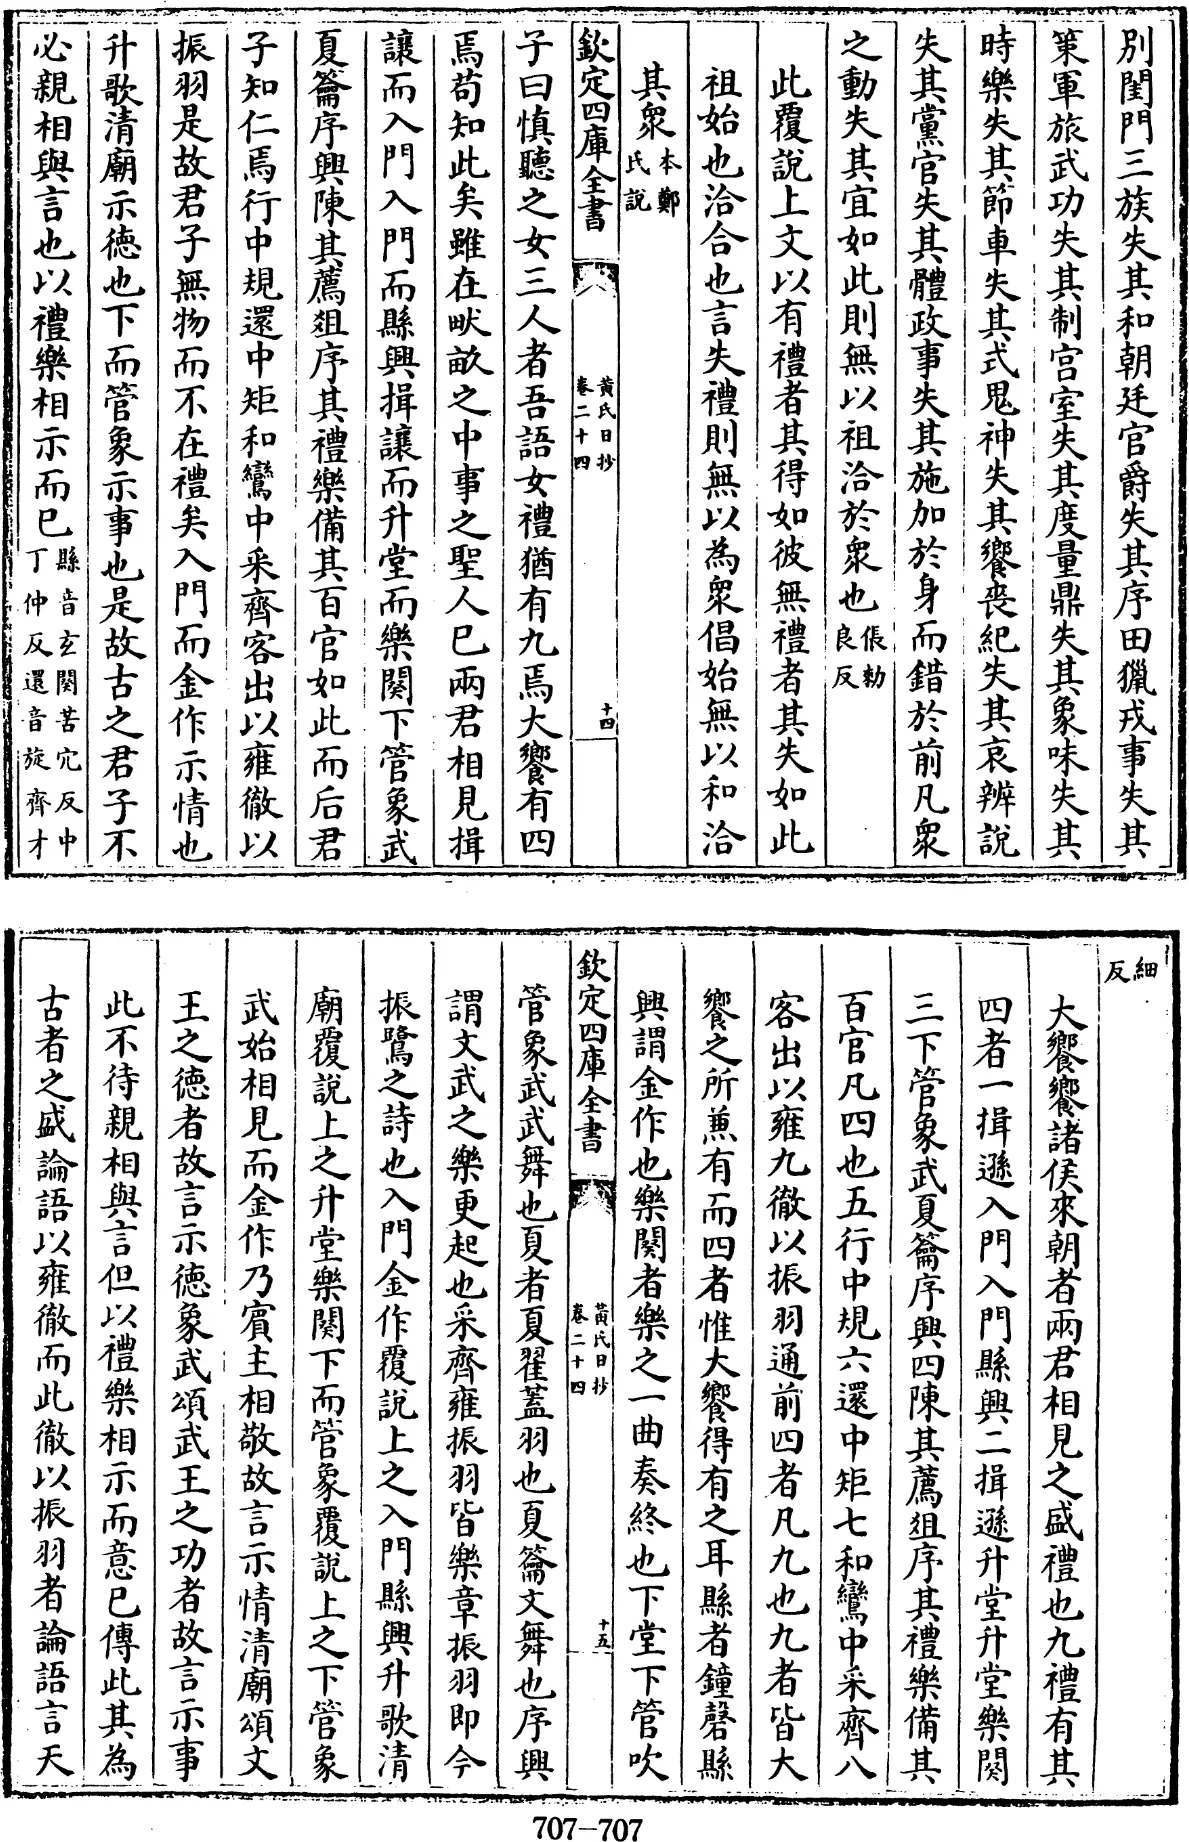 別閨門三族失其和朝廷官爵失其序田獵戎事失其
策軍旅武功失其制宫室失其度量鼎失其象味失其
時樂失其節車失其式鬼神失其饗喪紀失其哀辨說
失其黨官失其體政事失其施加於身而錯於前凡衆
之動失其宜如此則無以祖洽於衆也倀勑良反
此覆說上文以有禮者其得如彼無禮者其失如此
祖始也洽合也言失禮則無以為衆倡始無以和洽
其衆本鄭氏說
欽定四庫全書
黃氏日抄
卷二十四
十四
子曰慎聽之女三人者吾語女禮猶有九焉大饗有四
焉苟知此矣雖在畎畝之中事之聖人已兩君相見揖
讓而入門入門而縣興揖讓而升堂而樂闋下管象武
夏籥序興陳其薦俎序其禮樂備其百官如此而后君
子知仁焉行中規還中矩和鸞中采齊客出以雍徹以
振羽是故君子無物而不在禮矣入門而金作示情也
升歌清廟示德也下而管象示事也是故古之君子不
必親相與言也以禮樂相示而已縣音玄闋苦穴反中丁仲反還音旋齊才
細反
大饗饗諸侯來朝者兩君相見之盛禮也九禮有其
四者一揖遜入門入門縣興二揖遜升堂升堂樂闋
三下管象武夏籥序興四陳其薦俎序其禮樂備其
百官凡四也五行中規六還中矩七和鸞中采齊八
客出以雍九徹以振羽通前四者凡九也九者皆大
饗之所兼有而四者惟大饗得有之耳縣者鐘磬縣
興謂金作也樂闋者樂之一曲奏終也下堂下管吹
欽定四庫全書
黃氏日抄
卷二十四
十五
管象武武舞也夏者夏翟蓋羽也夏籥文舞也序興
謂文武之樂更起也采齊雍振羽皆樂章振羽即今
振鷺之詩也入門金作覆說上之入門縣興升歌清
廟覆說上之升堂樂闋下而管象覆說上之下管象
武始相見而金作乃賓主相敬故言示情清廟頌文
王之德者故言示德象武頌武王之功者故言示事
此不待親相與言但以禮樂相示而意已傳此其為
古者之盛論語以雍徹而此徹以振羽者論語言天
707-707